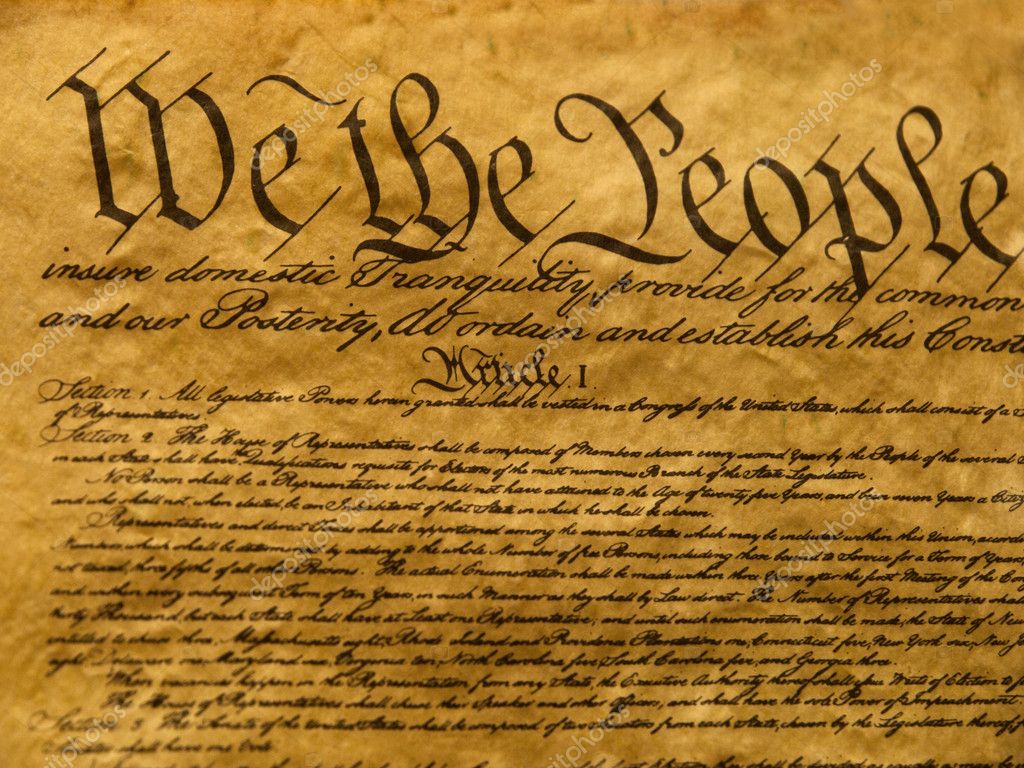 We the People
insure domestic Tranquility, provide for the common
and our Posterity, do ordain and establish this Const
Article I.
Section 1. All legislative Powers herein granted shall be vested in a Congress of the United States, which shall consist of a
of Representatives.
Section 2. The House of Representatives shall be composed of Members chosen every second Year by the People of the several
in each State shall have Qualifications requisite for Electors of the most numerous Branch of the State Legislature.
No Person shall be a Representative who shall not have attained to the Age of twenty five Years, and been seven Years a Citiz
and who shall not, when elected, be an Inhabitant of that State in which he shall be chosen.
Representatives and direct Taxes shall be apportioned among the several States which may be included within this Union, accord
Numbers, which shall be determined by adding to the whole Number of free Persons, including those bound to Service for a Term of Years,
not taxed, three fifths of all other Persons. The actual Enumeration shall be made within three Years after the first Meeting of the Con
and within every subsequent Term of ten Years, in such Manner as they shall by Law direct. The Number of Representatives shall
thirty Thousand, but each State shall have at Least one Representative; and until such enumeration shall be made, the State of New
entitled to chuse three, Massachusetts eight, Rhode Island and Providence Plantations one, Connecticut five, New York six, New J
eight, Delaware one, Maryland six, Virginia ten, North Carolina five, South Carolina five, and Georgia three.
When vacancies happen in the Representation from any State, the Executive Authority thereof shall issue Writs of Election to
The House of Representatives shall chuse their Speaker and other Officers; and shall have the sole Power of Impeachment.
Section 3. The Senate of the United States shall be composed of two Senators from each State, chosen by the Legislature thereof, f
Senator shall have one Vote.
depositphotos